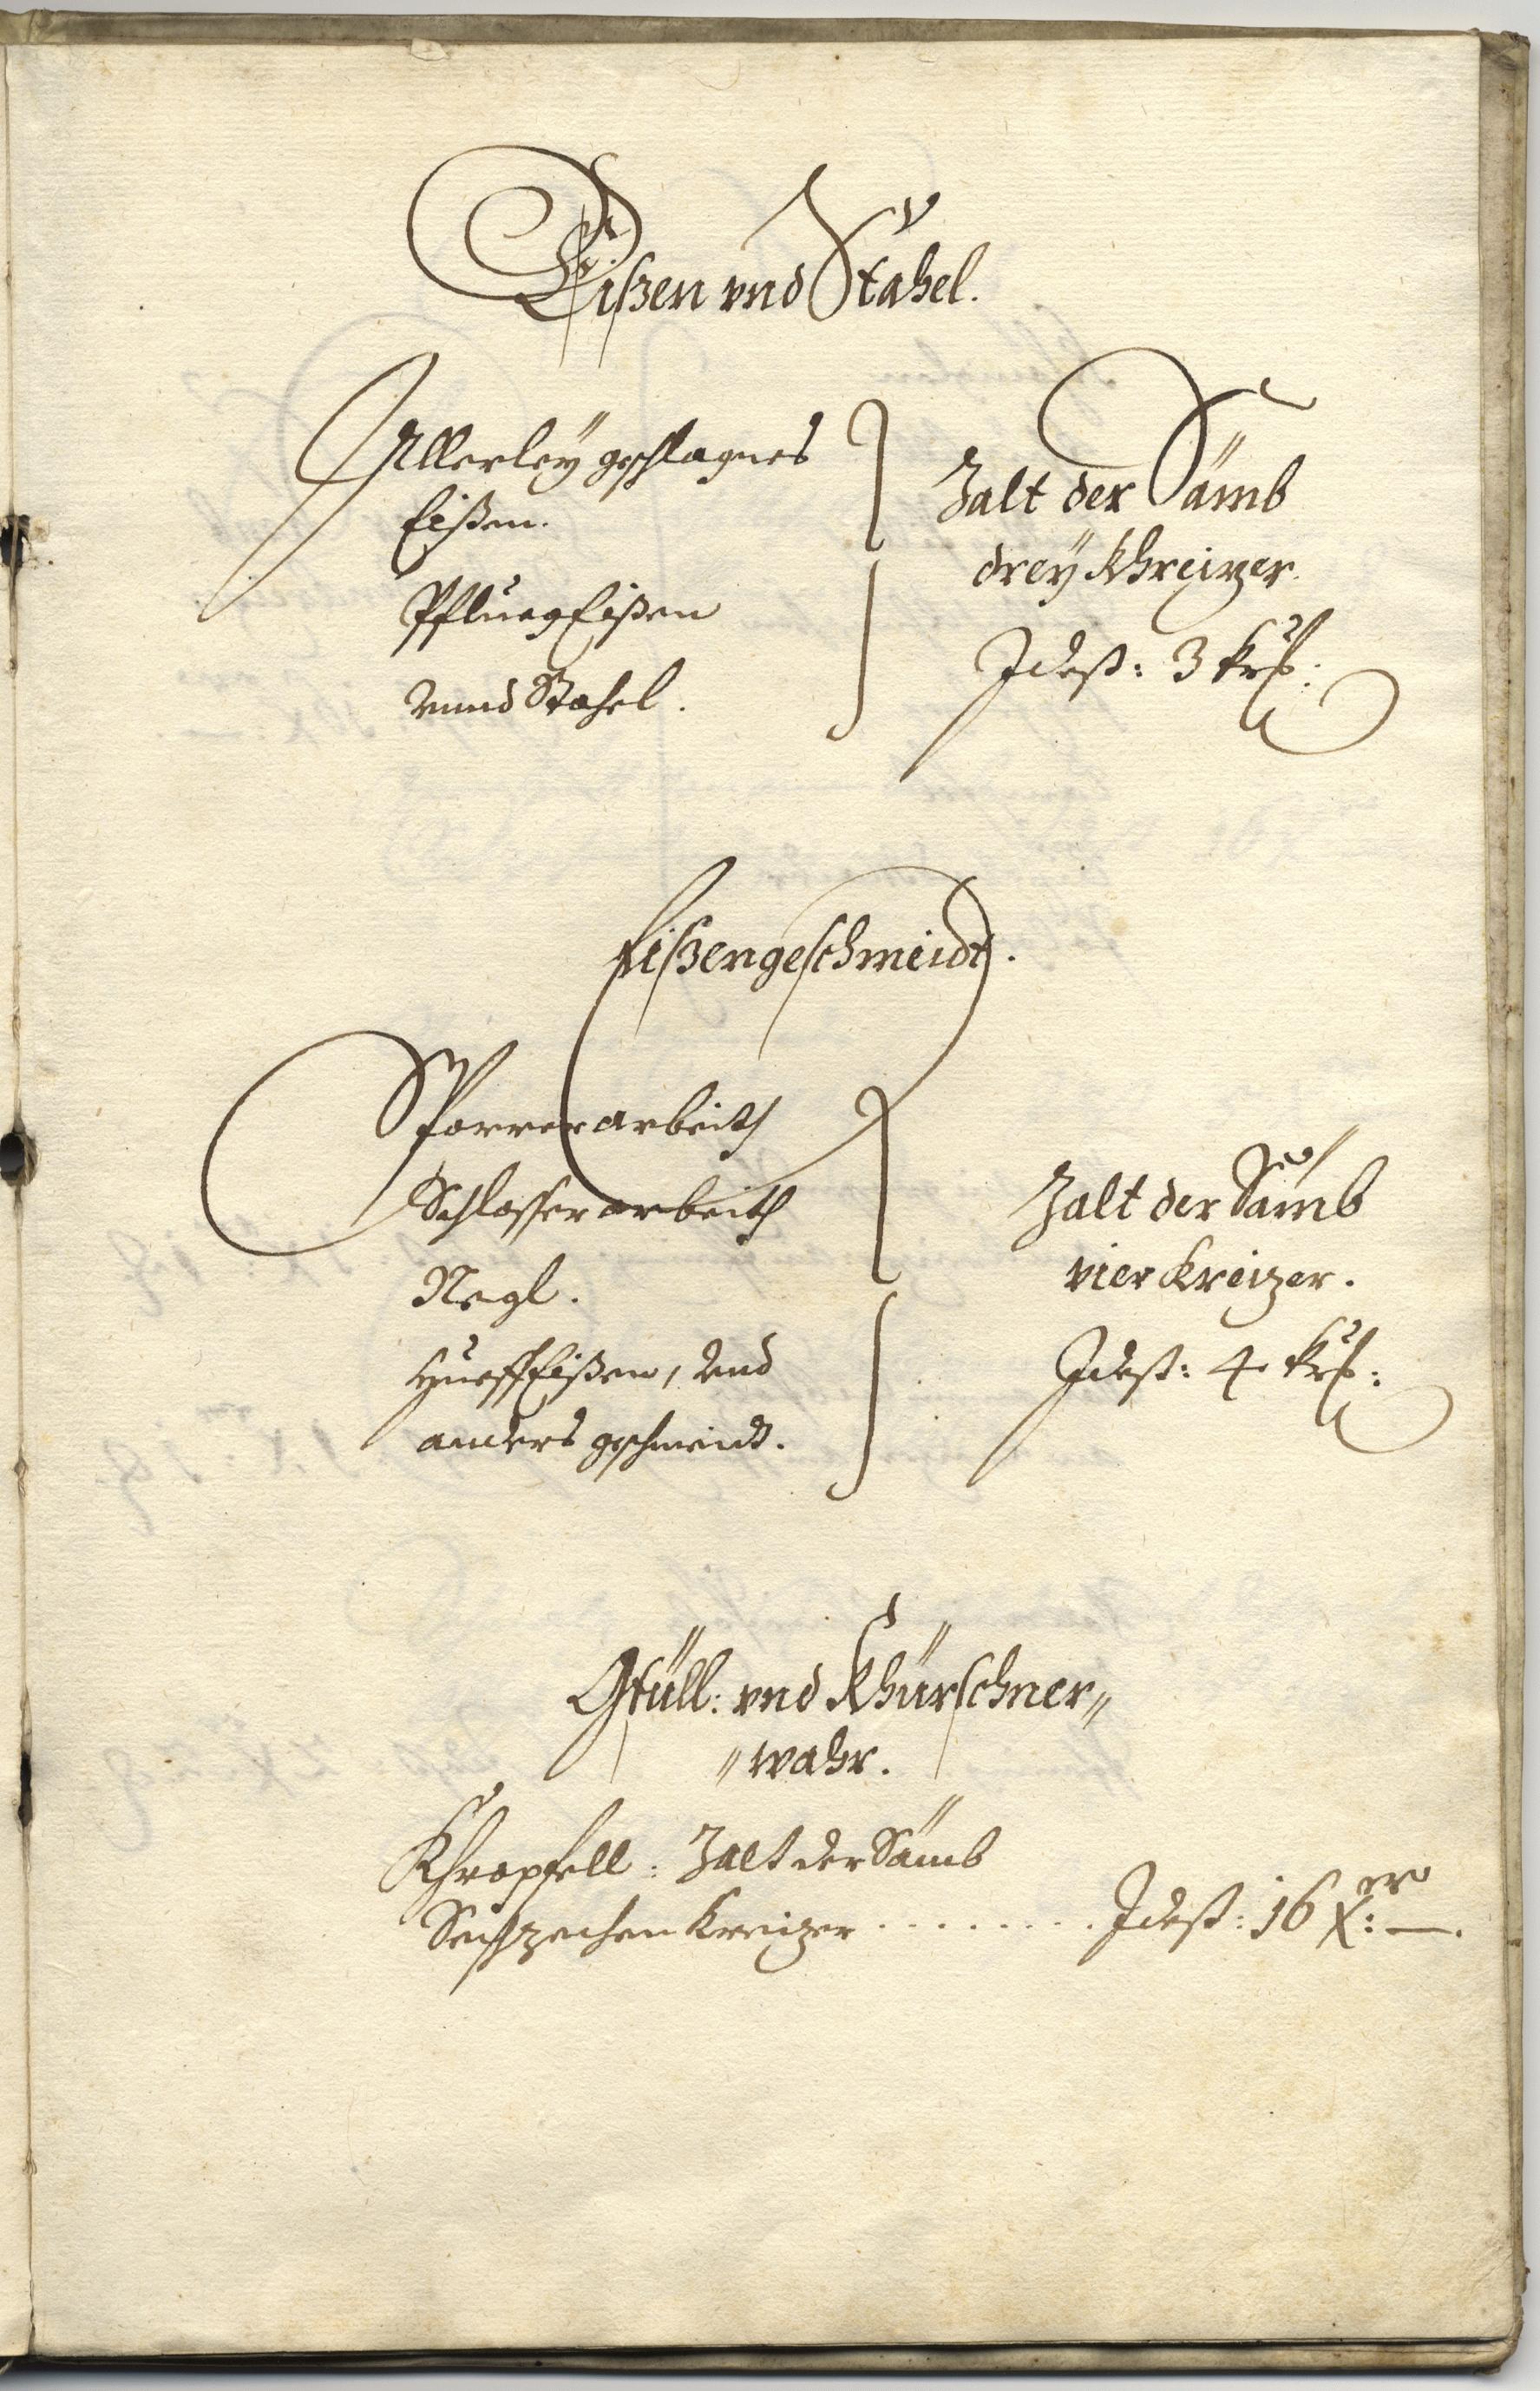 Eißen vnd Stahel.
Allerleÿ geschlagnes
Eißen.
Pfluegeißen
vnnd Stahel.
Zalt der Sämb
dreÿ Khreizer.
Idest: 3 krß:
Eißengeschmeidt.
Sporrerarbeith
Schlosserarbeith
Negl.
Hueffeißen, vnd
anders geschmeidt.
Zalt der Sämb
vier Kreizer.
Idest: 4 krß:
Gfüll: vnd Khürschner„
„wahr.
Khropfell: Zalt der Sämb
Sechzechen Kreizer ......... Idest: 16 X:er —.